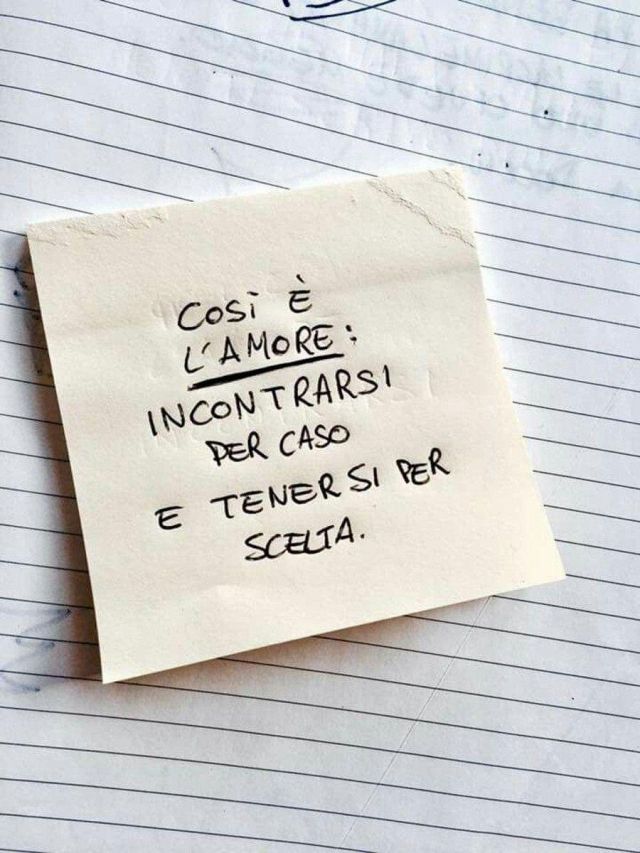 COSÌ È
L'AMORE:
INCONTRARSI
PER CASO
E TENERSI PER
SCELTA.